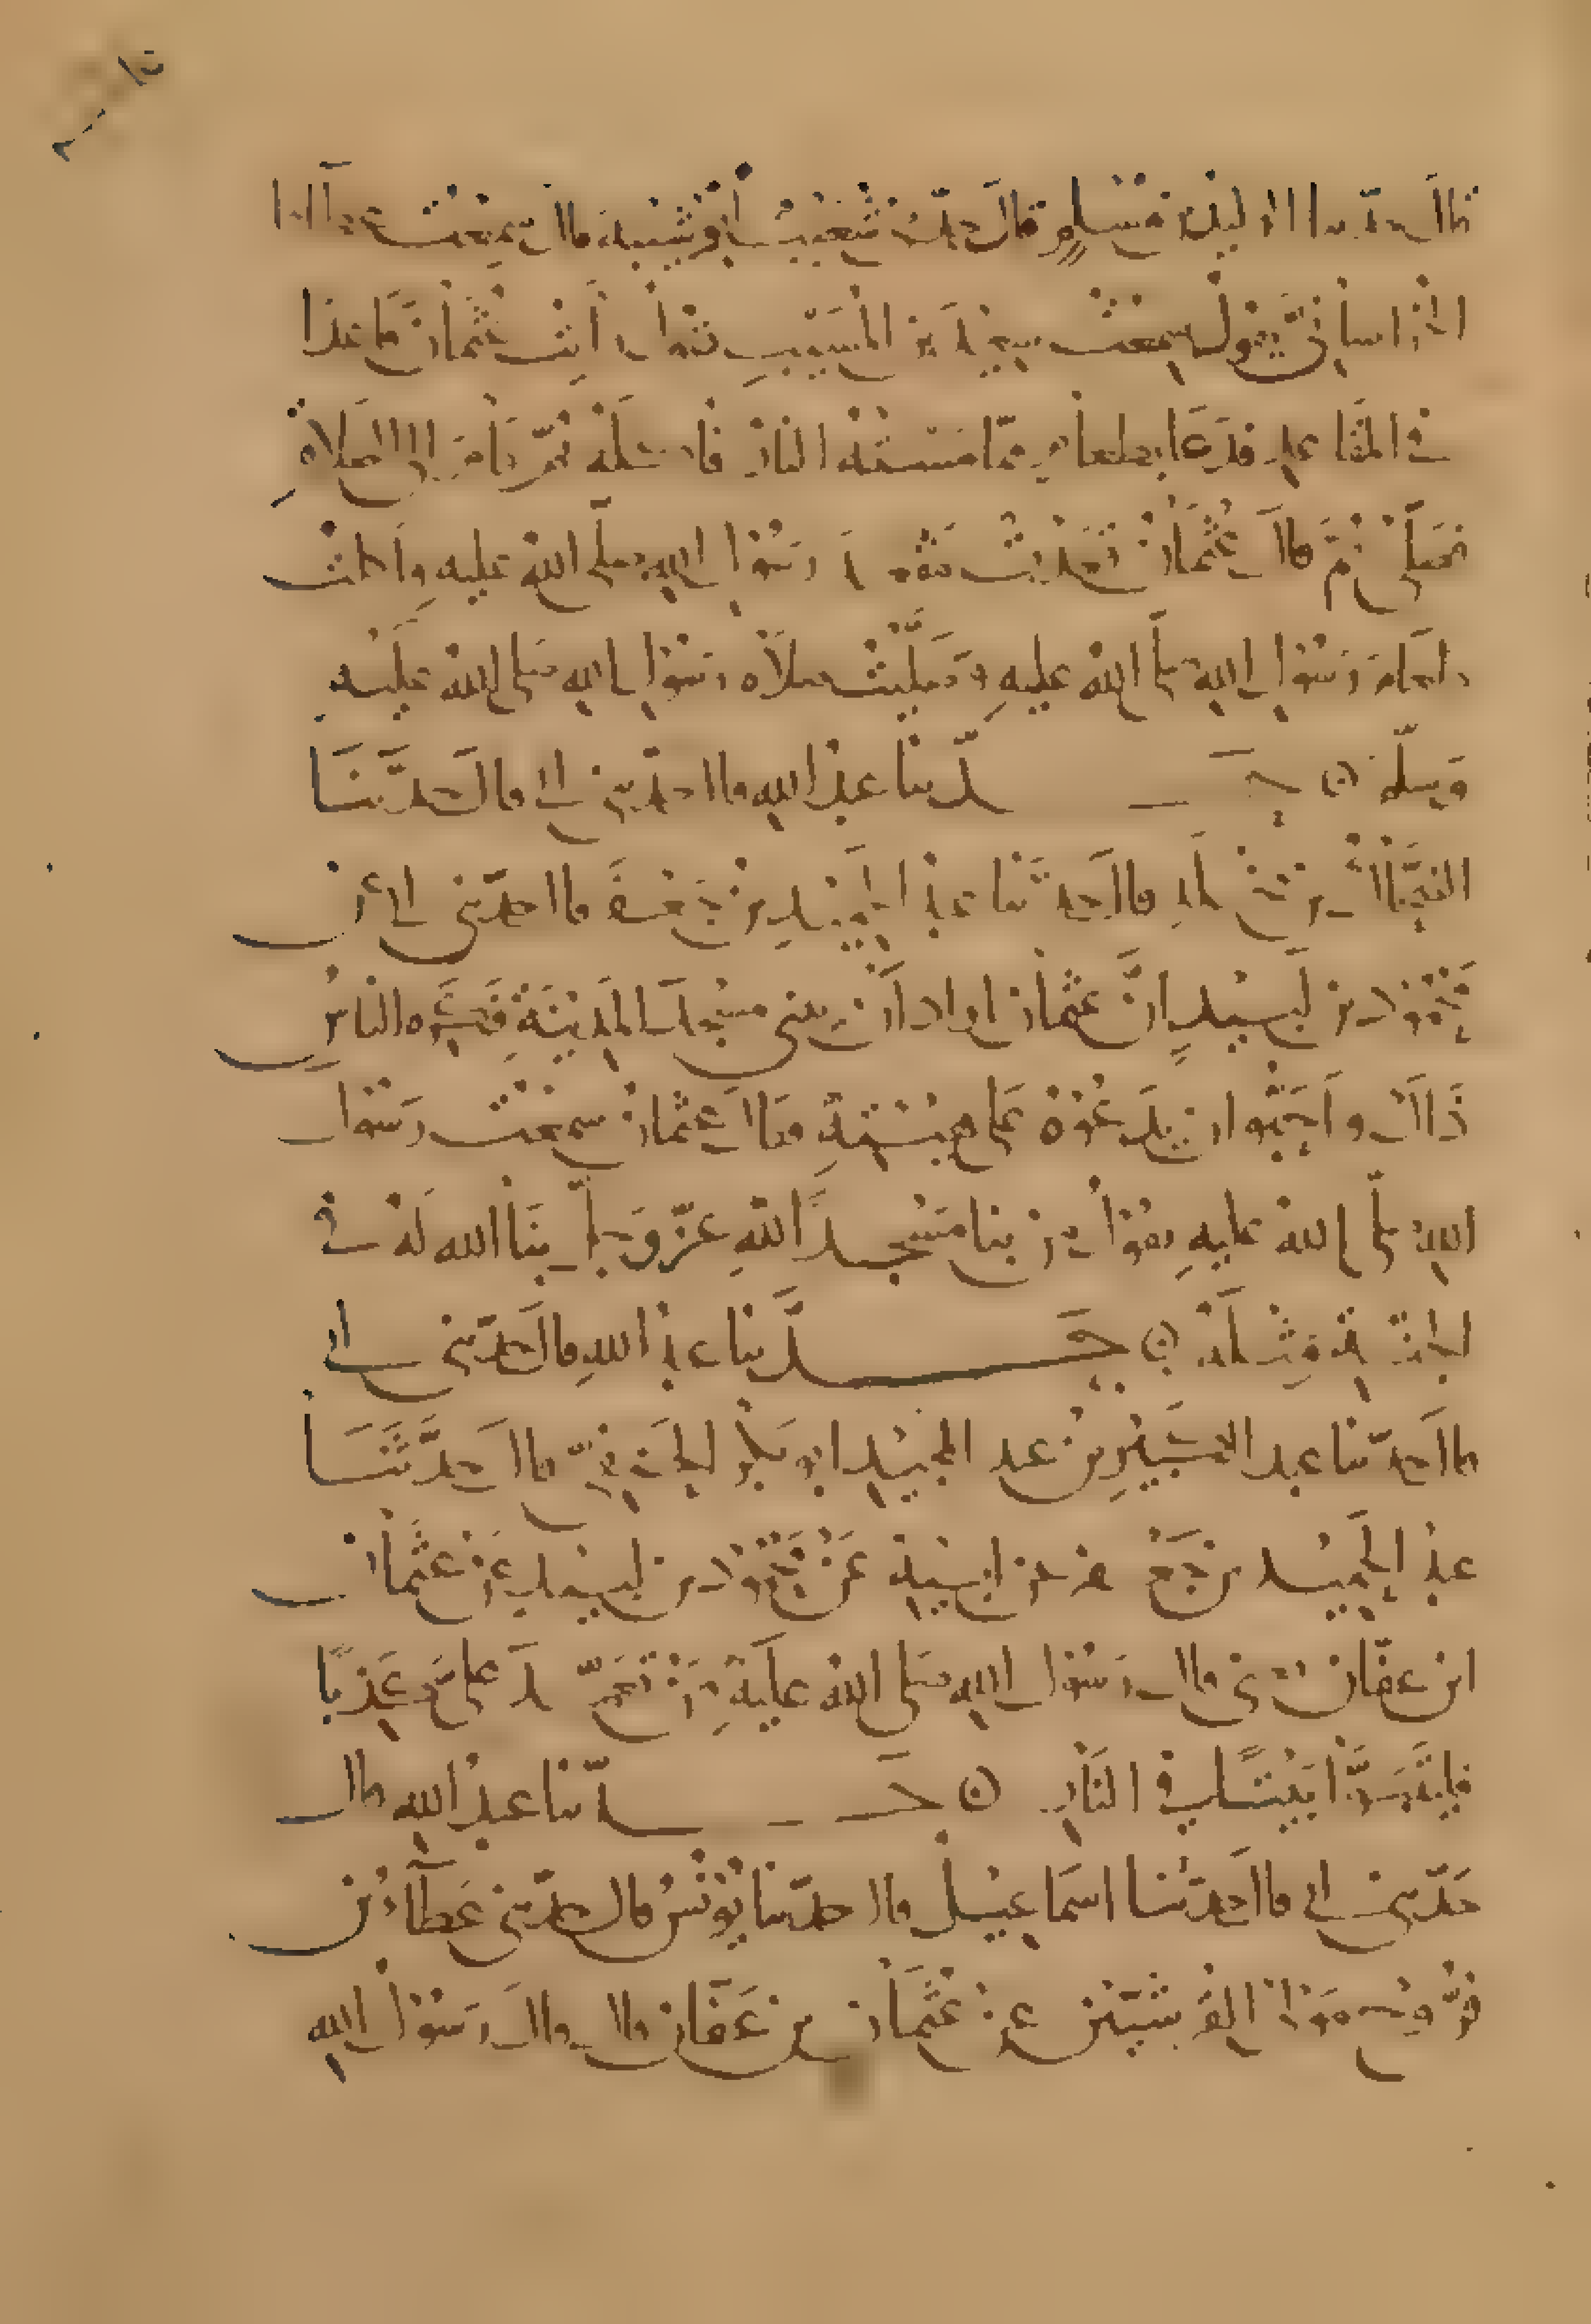 قال حدثنا الوليد بن مسلم قال حدثني شعيب أبو شيبة قال سمعت عطاء
الخراساني يقول سمعت سعيد بن المسيب يقول رأيت عثمان قاعدا
في المقاعد فدعا بطعام مما مسته النار فأكله ثم قام إلى الصلاة
فصلى ثم قال عثمان قعدت مقعد رسول الله صلى الله عليه وأكلت
طعام رسول الله صلى الله عليه وصليت صلاة رسول الله صلى الله عليه
وسلم ن حدثنا عبد الله قال حدثني أبي قال حدثنا
الضحاك بن مخلد قال حدثنا عبد الحميد بن جعفر قال حدثني أبي عن
محمود بن لبيد أن عثمان أراد أن يبني مسجد المدينة فكره الناس
ذاك وأحبوا أن يدعوه على هيئته فقال عثمان سمعت رسول
الله صلى الله عليه يقول من بنا مسجدا لله عز وجل بنا الله له في
الجنة مثله ن حدثنا عبد الله قال حدثني أبي
قال حدثنا عبد الكبير بن عبد المجيد أبو بكر الحنفي قال حدثنا
عبد الحميد بن جعفر عن أبيه عن محمود بن لبيد عن عثمان
ابن عفان قال رسول الله صلى الله عليه من تعمد علي كذبا
فليتبوأ بيتا في النار ن حدثنا عبد الله قال
حدثني أبي قال حدثنا إسماعيل قال حدثنا يونس قال حدثني عطاء بن
فروخ مولى القرشيين عن عثمان بن عفان قال قال رسول الله